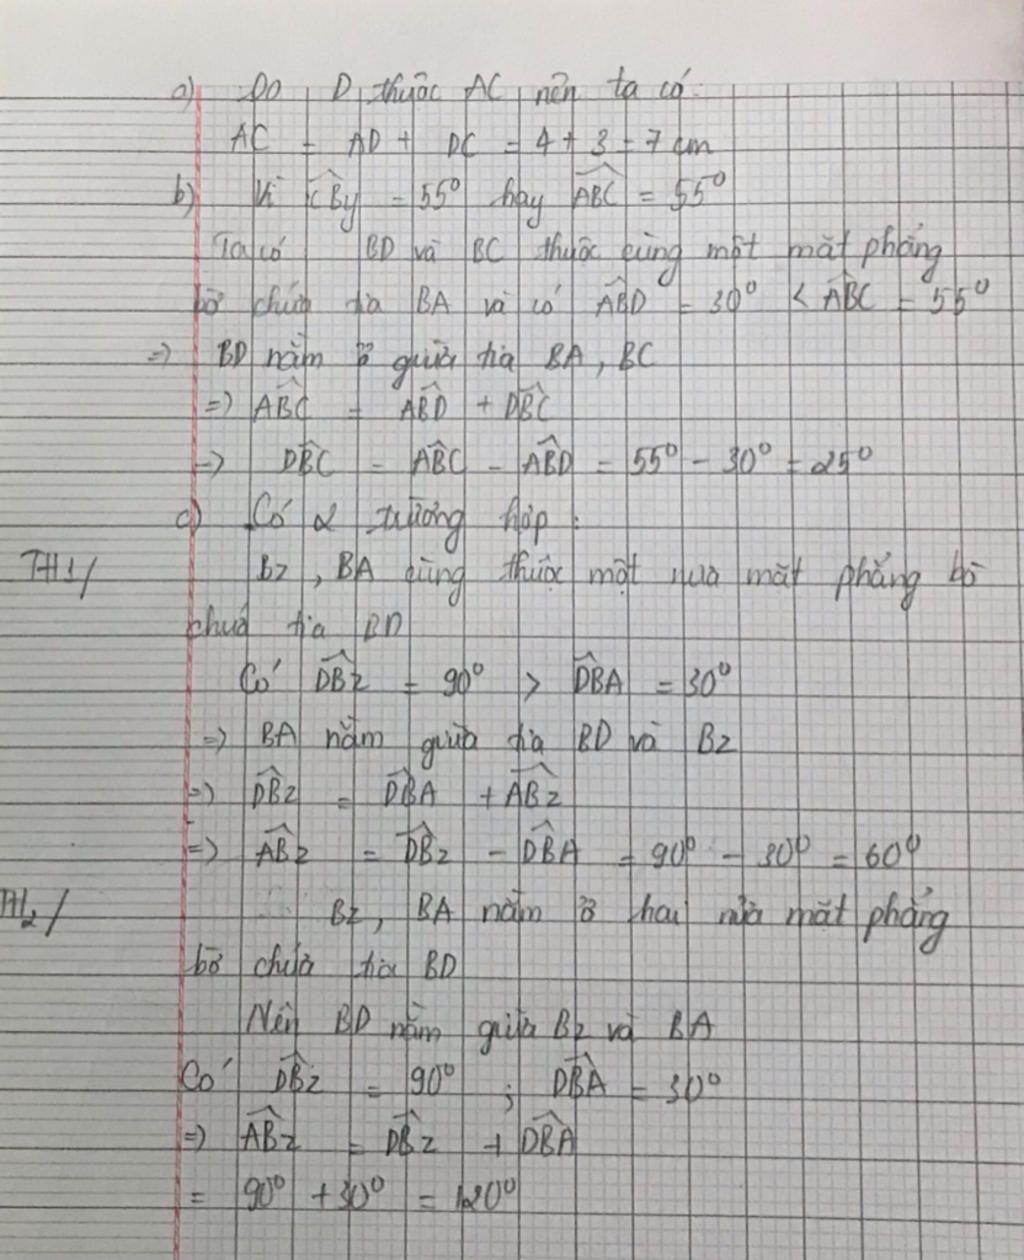 a) Do D thuộc AC nên ta có:
AC = AD + DC = 4 + 3 = 7 cm
b) Vì CBy = 55⁰ hay ABC = 55⁰
Ta có BD và BC thuộc cùng một mặt phẳng
bờ chứa tia BA và có ABD = 30⁰ < ABC = 55⁰
=> BD nằm ở giữa tia BA, BC
=> ABC = ABD + DBC
=> DBC = ABC - ABD = 55⁰ - 30⁰ = 25⁰
c) Có 2 trường hợp:
TH1/ Bz, BA cùng thuộc một nửa mặt phẳng bờ
chứa tia BD
Có DBz = 90⁰ > DBA = 30⁰
=> BA nằm giữa tia BD và Bz
=> DBz = DBA + ABz
=> ABz = DBz - DBA = 90⁰ - 30⁰ = 60⁰
TH2/ Bz, BA nằm ở hai nửa mặt phẳng
bờ chứa tia BD
Nên BD nằm giữa Bz và BA
Có DBz = 90⁰ ; DBA = 30⁰
=> ABz = DBz + DBA
= 90⁰ + 30⁰ = 120⁰